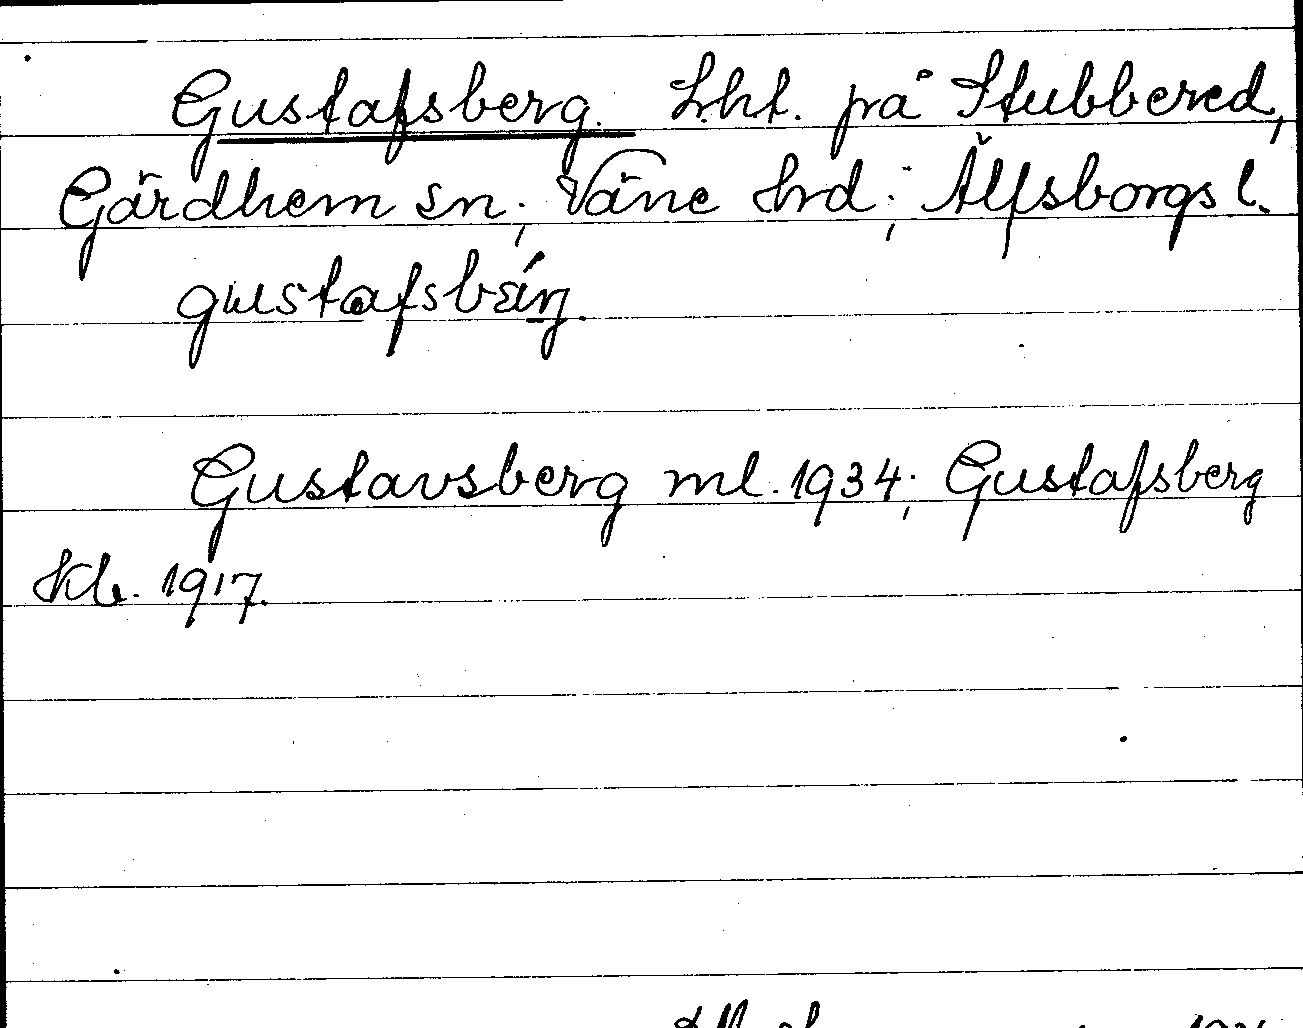 Gustafsberg. Lht. på Stubbered,
Gärdhem sn; Väne hrd; Älfsborgs l.
gustafsbærj.
Gustavsberg ml. 1934; Gustafsberg
Kb. 1917.